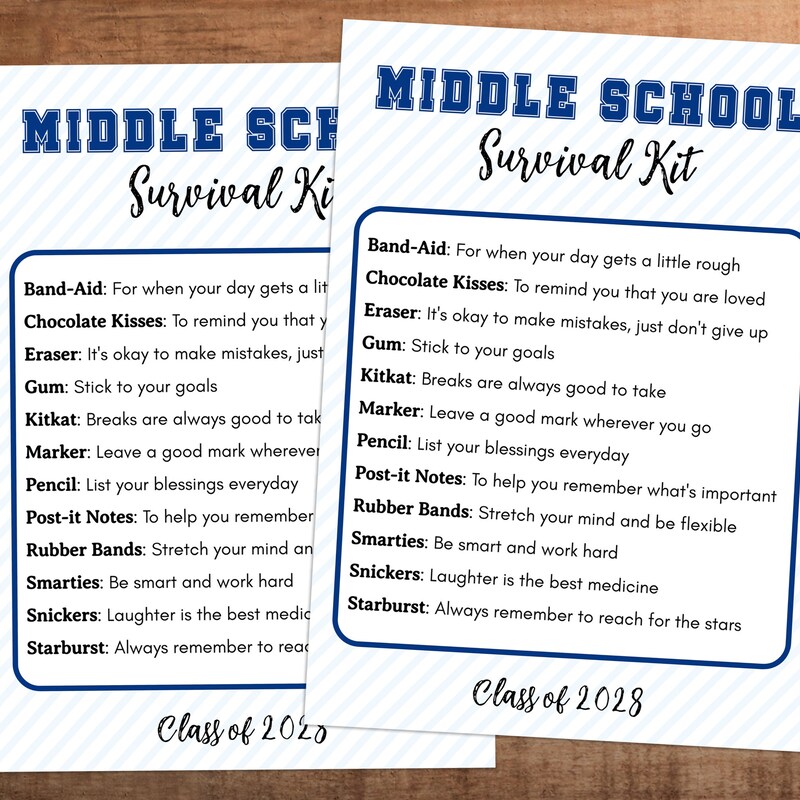 MIDDLE SCH
Survival Ki
Band-Aid: For when your day gets a lit
Chocolate Kisses: To remind you that y
Eraser: It's okay to make mistakes, just
Gum: Stick to your goals
Kitkat: Breaks are always good to tak
Marker: Leave a good mark wherever
Pencil: List your blessings everyday
Post-it Notes: To help you remember
Rubber Bands: Stretch your mind an
Smarties: Be smart and work hard
Snickers: Laughter is the best medic
Starburst: Always remember to reac
Class of 2028
MIDDLE SCHOOL
Survival Kit
Band-Aid: For when your day gets a little rough
Chocolate Kisses: To remind you that you are loved
Eraser: It's okay to make mistakes, just don't give up
Gum: Stick to your goals
Kitkat: Breaks are always good to take
Marker: Leave a good mark wherever you go
Pencil: List your blessings everyday
Post-it Notes: To help you remember what's important
Rubber Bands: Stretch your mind and be flexible
Smarties: Be smart and work hard
Snickers: Laughter is the best medicine
Starburst: Always remember to reach for the stars
Class of 2028